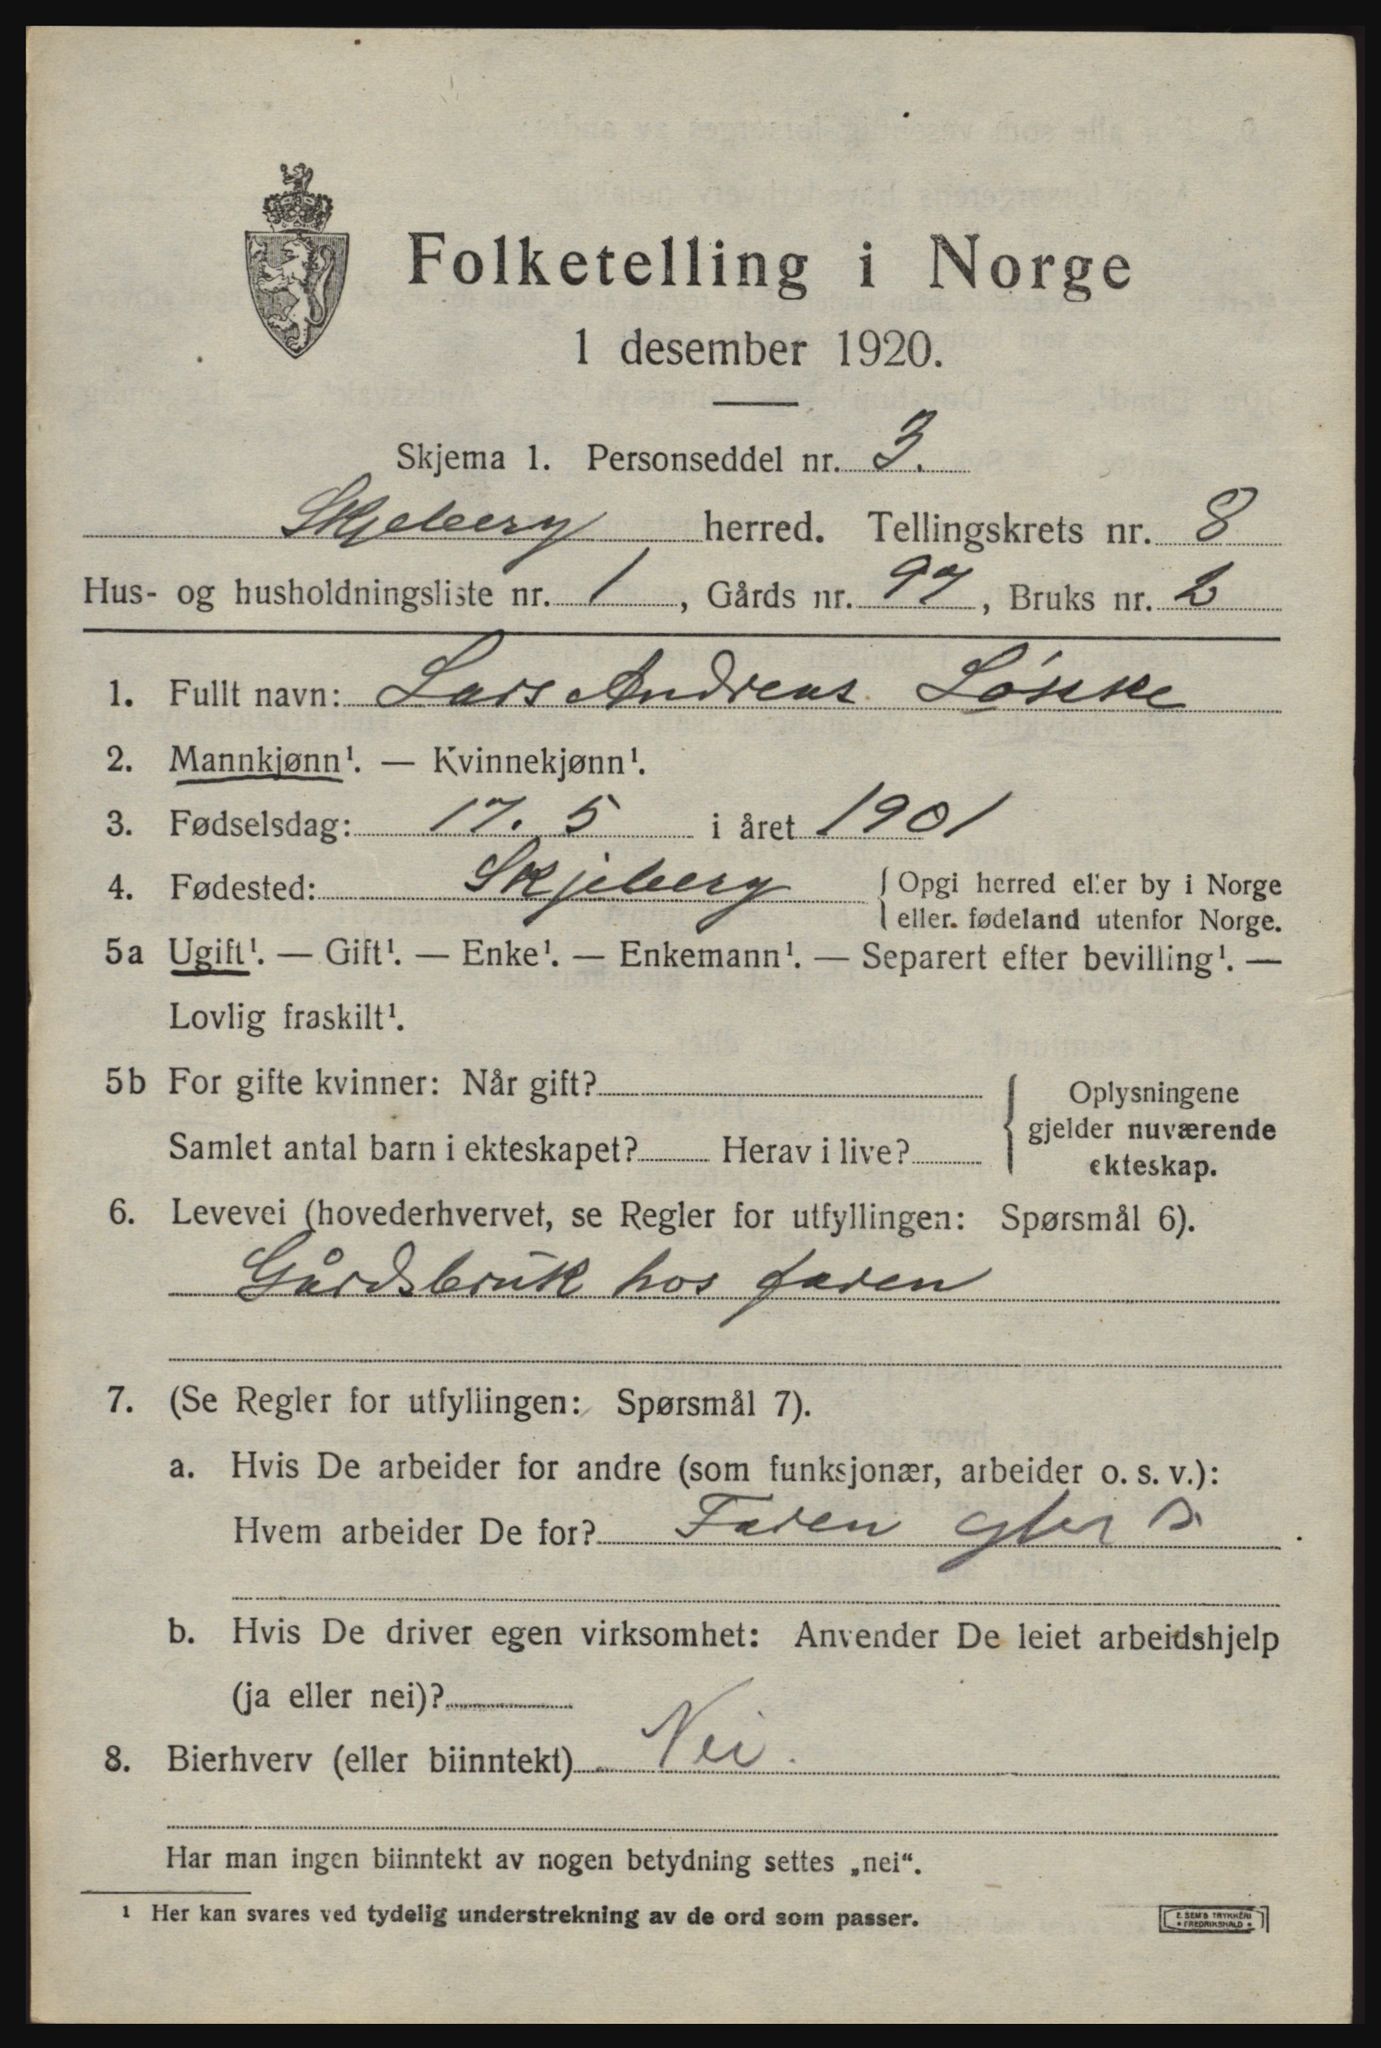 Folketelling i Norge
1 desember 1920.
Skjema 1. Personseddel nr. 3.
Skjeberg herred. Tellingskrets nr. 8
Hus- og husholdningsliste nr. 1, Gårds nr. 97, Bruks nr. 2
1. Fullt navn: Lars Andreas Løkke
2. Mannkjønn¹. — Kvinnekjønn¹.
3. Fødselsdag: 17. 5 i året 1901
4. Fødested: Skjeberg { Opgi herred eller by i Norge
eller fødeland utenfor Norge.
5a Ugift¹. — Gift¹. — Enke¹. — Enkemann¹. — Separert efter bevilling¹. —
Lovlig fraskilt¹.
5b For gifte kvinner: Når gift?
Samlet antal barn i ekteskapet? Herav i live?
{ Oplysningene
gjelder nuværende
ekteskap.
6. Levevei (hovederhvervet, se Regler for utfyllingen: Spørsmål 6).
Gårdsbruk hos faren
7. (Se Regler for utfyllingen: Spørsmål 7).
a. Hvis De arbeider for andre (som funksjonær, arbeider o. s. v.):
Hvem arbeider De for? Faren
b. Hvis De driver egen virksomhet: Anvender De leiet arbeidshjelp
(ja eller nei)?
8. Bierhverv (eller biinntekt) Nei.
Har man ingen biinntekt av nogen betydning settes „nei“.
¹ Her kan svares ved tydelig understrekning av de ord som passer.
E. SEM'S TRYKKERI
• FREDRIKSHALD •